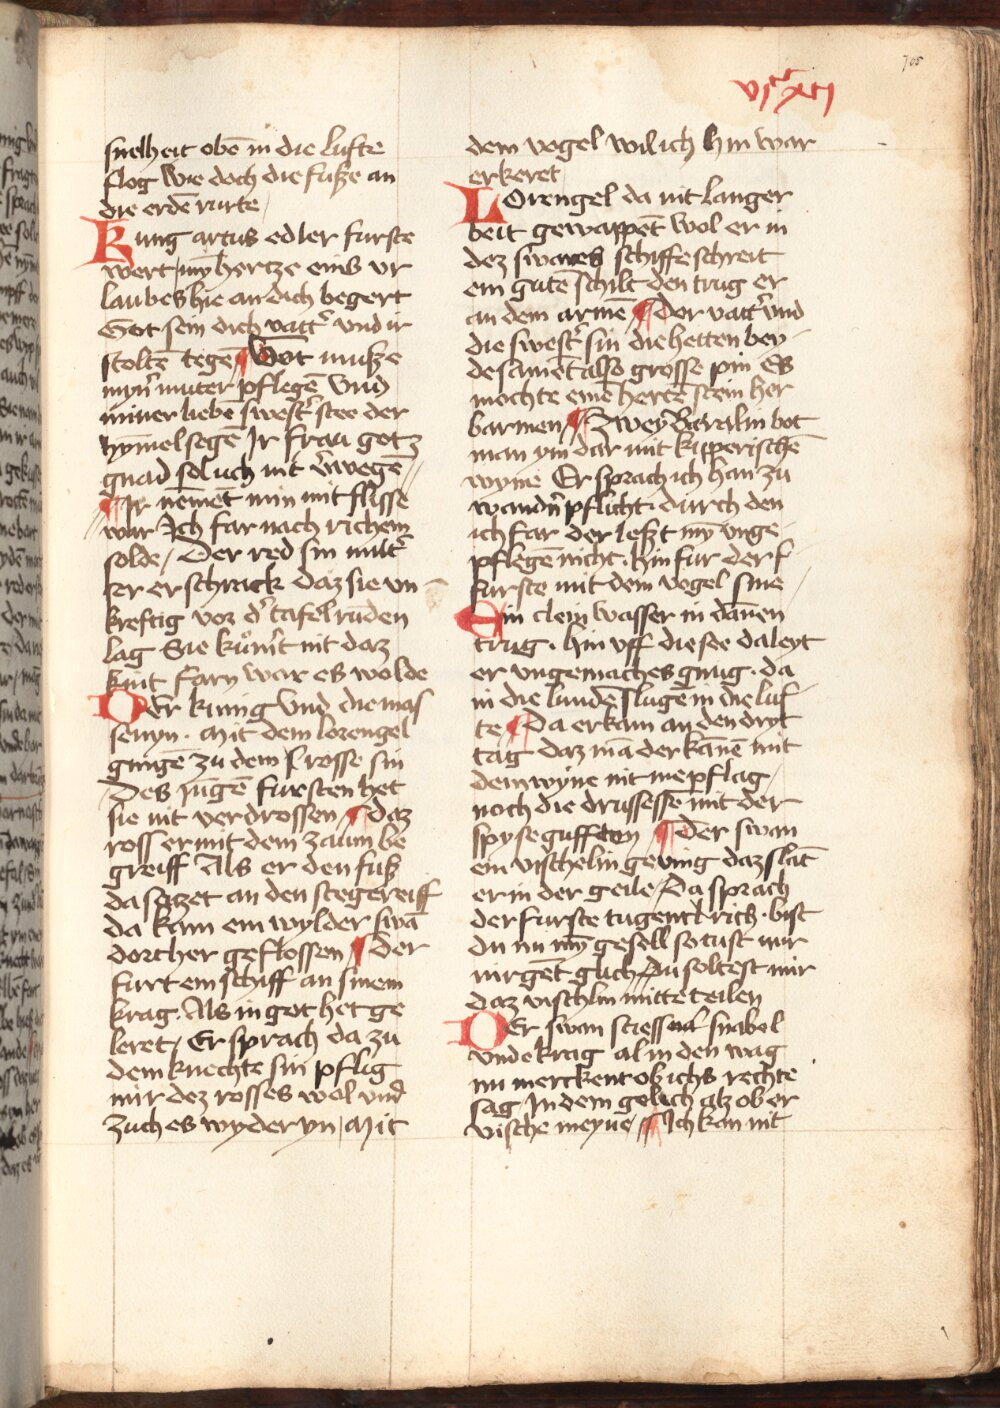 705
vjᶜ xcj
snelheit obē in die lufte
flog wie doch die fusze an
die erdē rurte
Kung artus edler furste
wert / my̅ hertze eins vr
laubes hie an dich begert
Got sein dich vattʼ und ir
stoltē tegē ¶ Got musze
mynʼ muter pflegē Vnd
miner liebē swestʼ stee der
hymelsegē Ir frau gotz
gnad sol uch nit vʼwegē
¶ Ir nēmēt min mit flisse
war Ich far nach richem
solde / Der red sin mutʼ
ser erschrack daz sie vn
kreftig vor dʼ tafelrundēn
lag Sie kundʼt nit daz
kint farn war es wolde
Der kunig Vnd die mas
senyn. Mit dem lorengel
gingē zu dem rosse sin
Des jungē fursten het
sie nit verdrossen ¶ daz
ross er mit dem zaum be
greiff Als er den fusz
da satzet an den stegereiff
da kam ein wylder swā
dorther geflossen ¶ Der
furt ein schiff an sinem
krag. Als in got het ge
leret / Er sprach da zu
dem knechte sin pflig
mir dez rosses wol vnd
zuch es wyder yn / Mit
dem vogel wil ich hin war
er keret
LOrengel da nit langer
beit gewappēt wol er in
dez swanes schiffe schreit
ein gutē schilt den trug er
an dem armē ¶ Der vattʼ vnd
die swestʼ sin die hetten bey
de sament also grosse pin Es
mochte einē hertē stein her
barmen ¶ Zwey barelin bot
man ym dar mit kipperischē
wyne Er sprach ich han zu
wandʼn pflicht. durch den
ich far der leszt my̅ vnge
pflegē nicht. hin fur der f
furste mit dem vogel sine
Ein clein wasser in dānen
trug. hin vff die see da leyt
er vngemaches gnug. da
in die lunden slugē in die luf
te ¶ Da er kam an den dryt
tag daz mā der kānē mit
dem wyne nit me pflag
noch die drussessē mit der
spyse gufften ¶ Der swan
ein vischelin geving daz slāt
er in der geile / Da sprach
der furste tugentlrich. bist
du nu my̅ gesell so tust mir
nirgēt glich / Du soltest mir
daz vischlin mitte teilen
Der swan stiess snabel
vnde krag al in den wag
nu merckent ob ichs rechte
sag / In dem gelich alz ob er
vische meyne / ¶ Ich kan nit